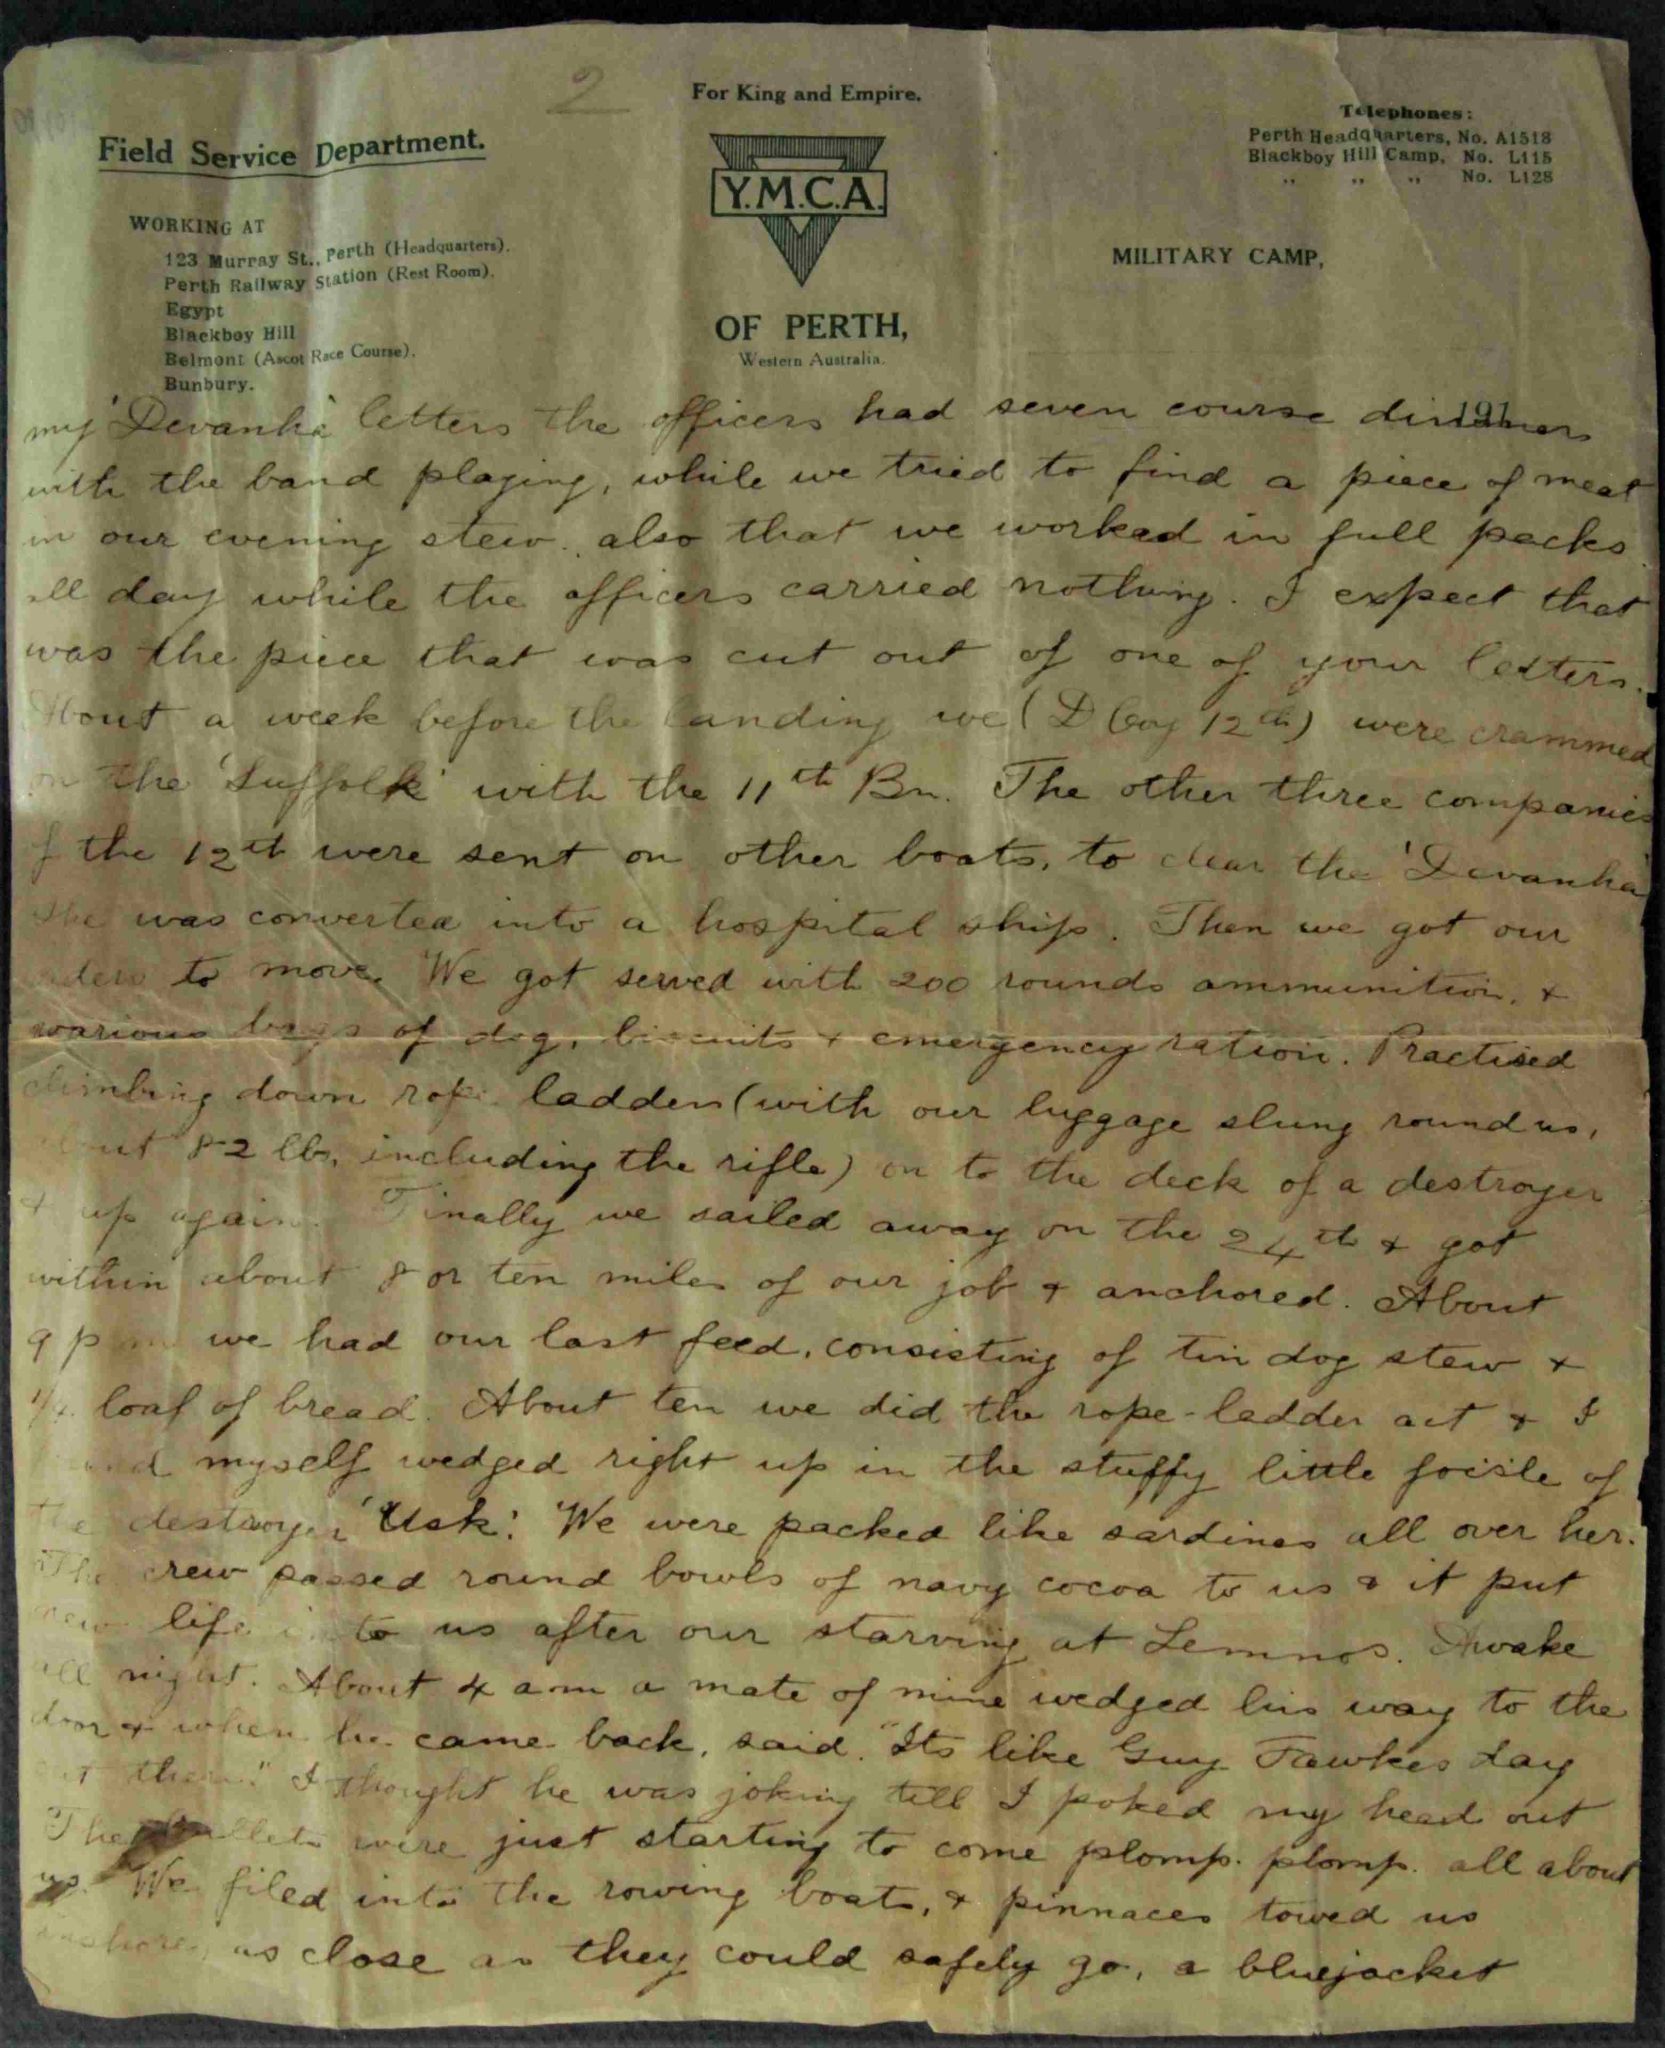 2
For King and Empire.
Field Service Department.
Y.M.C.A.
OF PERTH,
Western Australia.
Telephones:
Perth Headquarters, No. A1518
Blackboy Hill Camp, No. L115
„ „ „ No. L128
WORKING AT
123 Murray St., Perth (Headquarters).
Perth Railway Station (Rest Room).
Egypt
Blackboy Hill
Belmont (Ascot Race Course).
Bunbury.
MILITARY CAMP,
191
my 'Devanha' letters the officers had seven course dinners
with the band playing, while we tried to find a piece of meat
in our evening stew. also that we worked in full packs
all day while the officers carried nothing. I expect that
was the piece that was cut out of one of your letters.
About a week before the landing we (D Coy 12th) were crammed
on the 'Suffolk' with the 11th Bn. The other three companies
of the 12th were sent on other boats, to clear the 'Devanha'
she was converted into a hospital ship. Then we got our
orders to move. We got served with 200 rounds ammunition, &
various bags of dog, biscuits & emergency ration. Practised
climbing down rope ladders (with our luggage slung round us,
about 82 lbs, including the rifle) on to the deck of a destroyer
& up again. Finally we sailed away on the 24th & got
within about 8 or ten miles of our job & anchored. About
9 pm we had our last feed, consisting of tin dog stew &
1/4 loaf of bread. About ten we did the rope-ladder act & I
found myself wedged right up in the stuffy little foc'sle of
the destroyer 'Usk'. We were packed like sardines all over her.
The crew passed round bowls of navy cocoa to us & it put
new life into us after our starving at Lemnos. Awake
all night. About 4 am a mate of mine wedged his way to the
door & when he came back, said. "Its like Guy Fawkes day
out there." I thought he was joking till I poked my head out
The bullets were just starting to come plomp. plomp. all about
us. We filed into the rowing boats, & pinnaces towed us
inshore, as close as they could safely go, a bluejacket